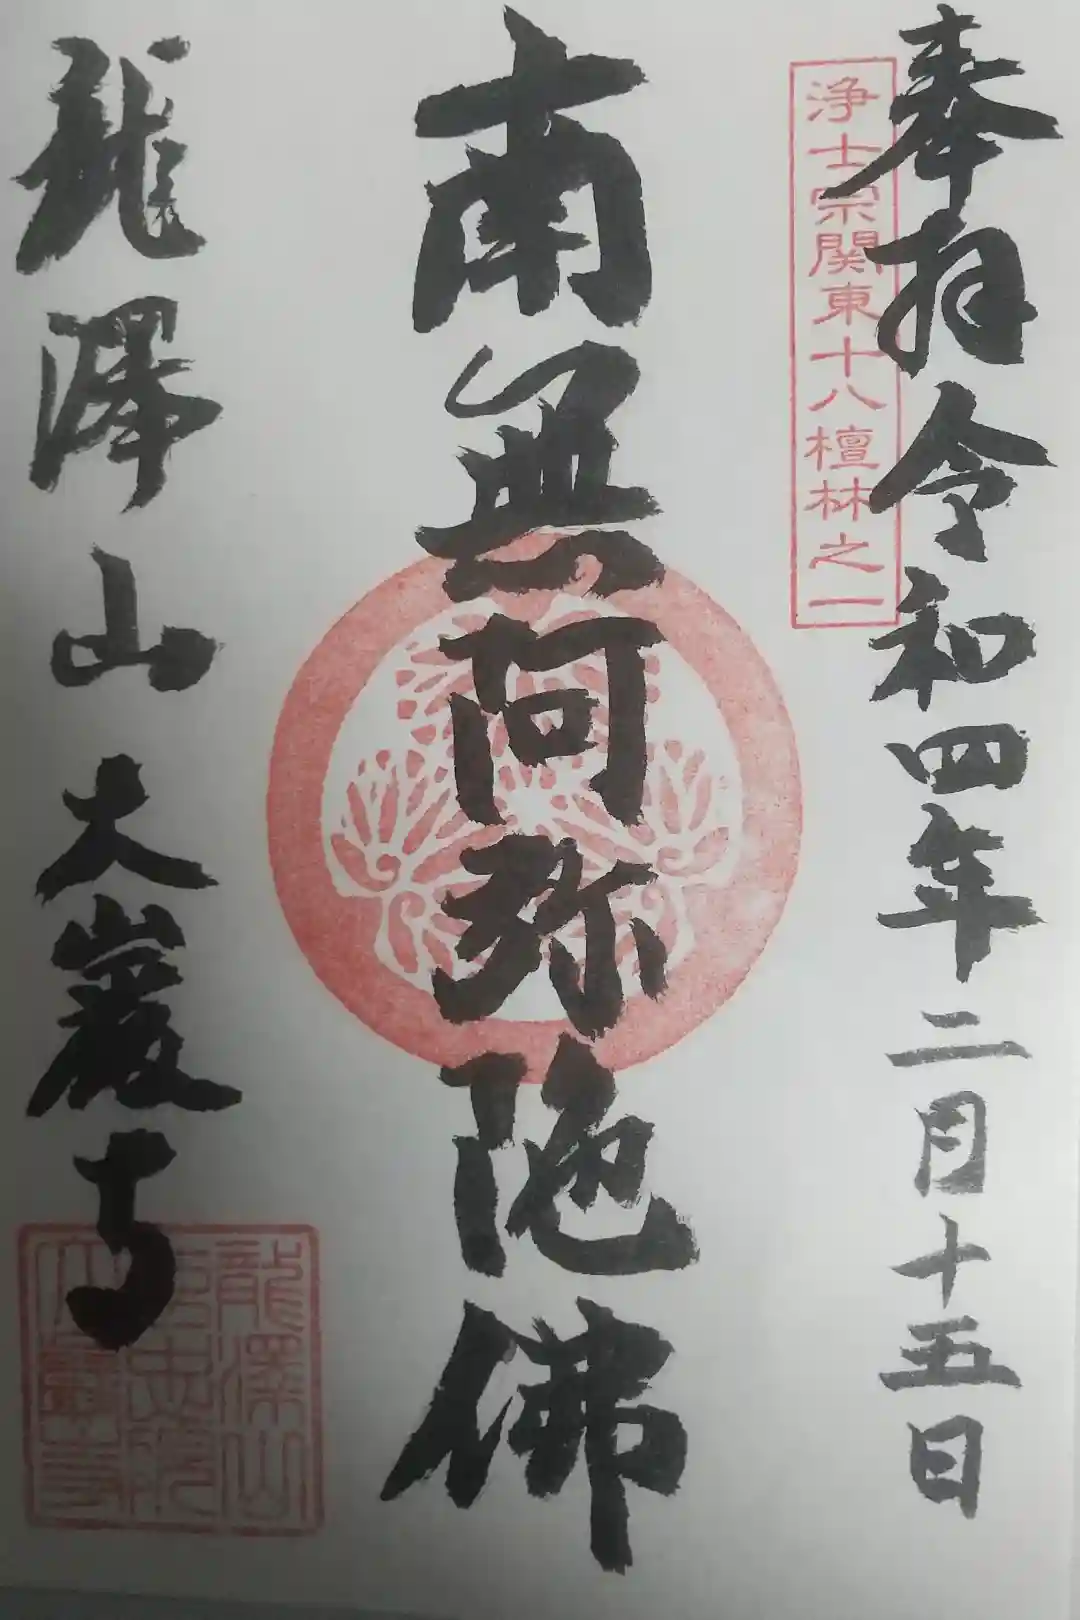 奉拝令和四年二月十五日
浄土宗関東十八檀林之一
南無阿弥陀佛
龍澤山大巖寺
龍澤山
大巖寺